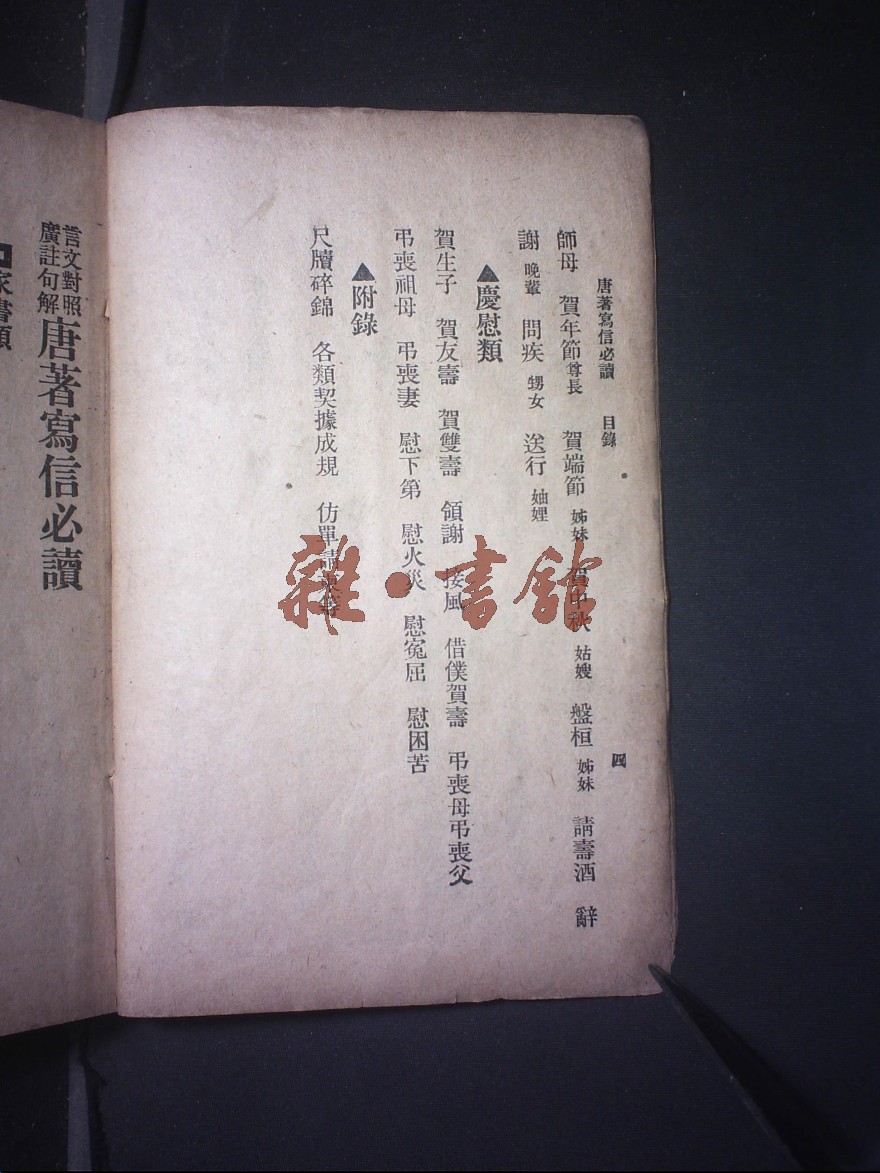 唐著寫信必讀 目錄 四
師母 賀年節 尊長 賀端節 姊妹 賀中秋 姑嫂 盤桓 姊妹 請壽酒 辭
謝 晚輩 問疾 甥女 送行 妯娌
▲慶慰類
賀生子 賀友壽 賀雙壽 領謝 接風 借僕賀壽 弔喪母弔喪父
弔喪祖母 弔喪妻 慰下第 慰火災 慰寃屈 慰困苦
▲附錄
尺牘碎錦 各類契據成規 仿單請
雜·書館
言文對照
廣註句解
唐著寫信必讀
家書類